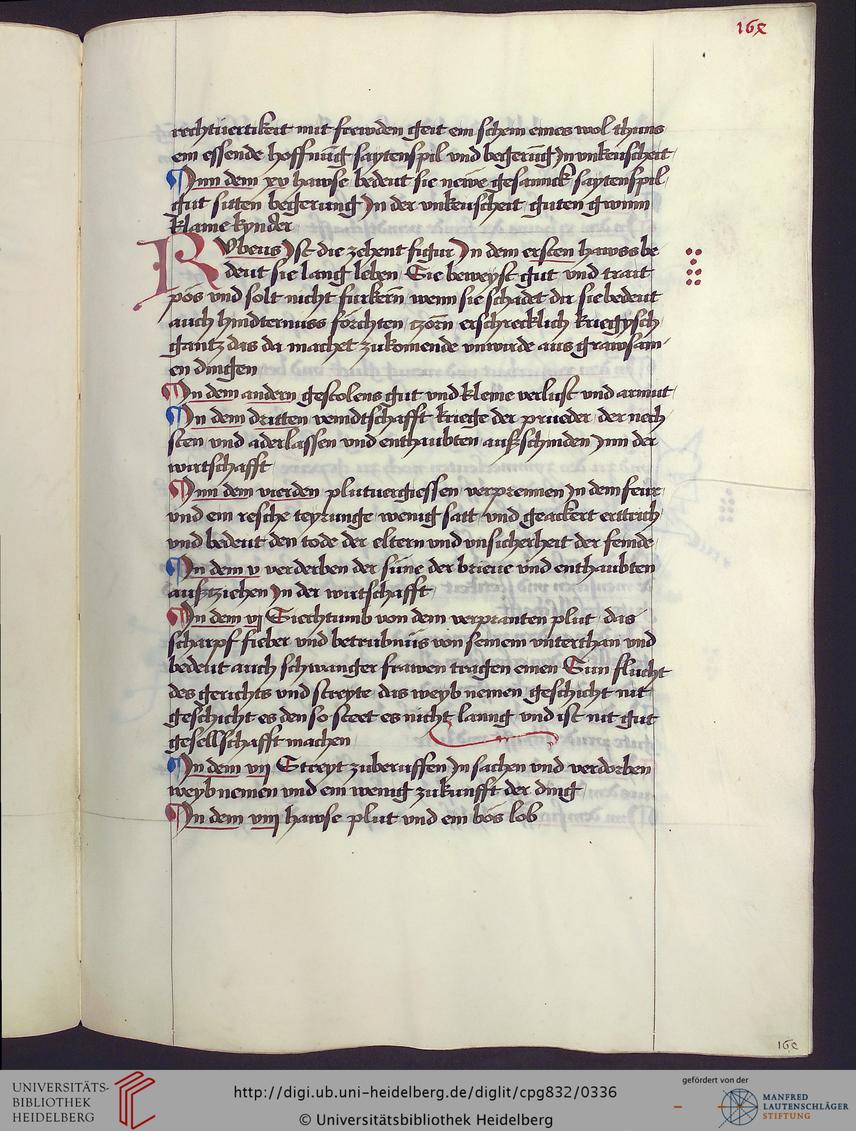 16e
rechtuertikeit mit frewden geit ein schein eines wol thuns
ein essende hoffnūg saytenspil vnd begerūg Jn vnkeuscheit
Jnn dem xv hawse bedeut sie newe gesannck saytenspil
gut sitten begerung Jn der vnkeuscheit guten gwinn
klaine kynder
RVbeus Jst die zehent figur Jn dem ersten hawss be
deut sie lang leben Sie beweyst gut vnd traut
pös vnd solt nicht furkern wenn sie schadet dir sie bedeut
auch hindternuss förchten zörn erschrecklich kriegysch
gantz das da machet zukomende vnwirde aus grawsam
en dingen
Jn dem andern gestolens gut vnd kleine verlust vnd armut
Jn dem dritten veindtschafft kriege der prueder der nech
sten vnd aderlassen vnd enthaubten aufschinden Jnn der
wirtschafft
Jnn dem vierden plutuergiessen verprennen Jn dem feur
vnd ein resche teyrunge wenig satt vnd geackert erttrich
vnd bedeut den tode der eltern vnd vnsicherheit der feinde
Jn dem v verderben der süne der brieue vnd enthaubten
aufsziehen Jn der wirtschafft
Jn dem vj Siechtumb von dem verpranten plut das
scharpf fieber vnd betrubnus von seinem vnterthan vnd
bedeut auch schwanger frawen tragen einen Sun flucht
des gerichts vnd streyte das weyb nemen geschicht nit
geschicht es den so steet es nicht lanng vnd ist nit gut
gesellschafft machen
Jn dem vij Streyt zuberuffen Jn sachen vnd verdorben
weyb nemen vnd ein wenig zukunfft der ding
Jn dem viij hawse plut vnd ein bös lob
16e
UNIVERSITÄTS-
BIBLIOTHEK
HEIDELBERG
http://digi.ub.uni-heidelberg.de/diglit/cpg832/0336
© Universitätsbibliothek Heidelberg
gefördert von der
MANFRED
LAUTENSCHLÄGER
STIFTUNG